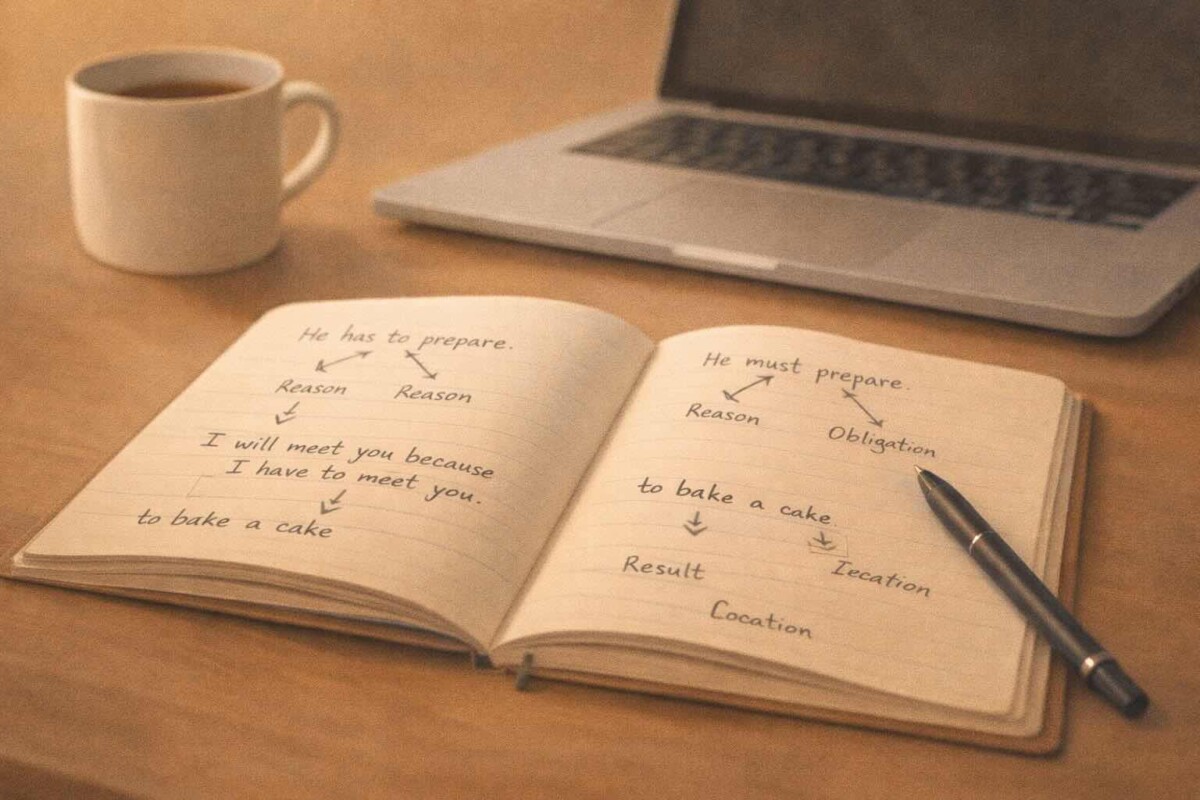 He has to prepare.
Reason Reason
I will meet you because
I have to meet you.
to bake a cake
He must prepare.
Reason
Obligation
to bake a cake.
Result
Iecation
Cocation